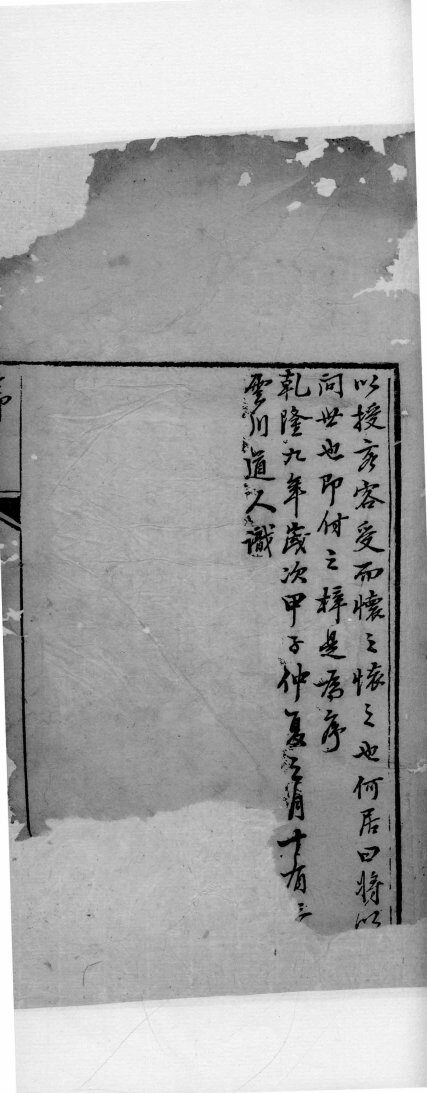 以授客容受而懷之懷之也何居曰將以
問世也即付之梓是為序
乾隆九年歲次甲子仲夏之月十有三
雲川道人識
序